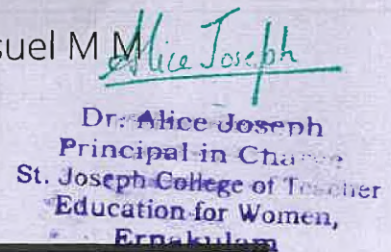 suel M M
Alice Joseph
Dr. Alice Joseph
Principal in Charge
St. Joseph College of Teacher
Education for Women,
Ernakulam